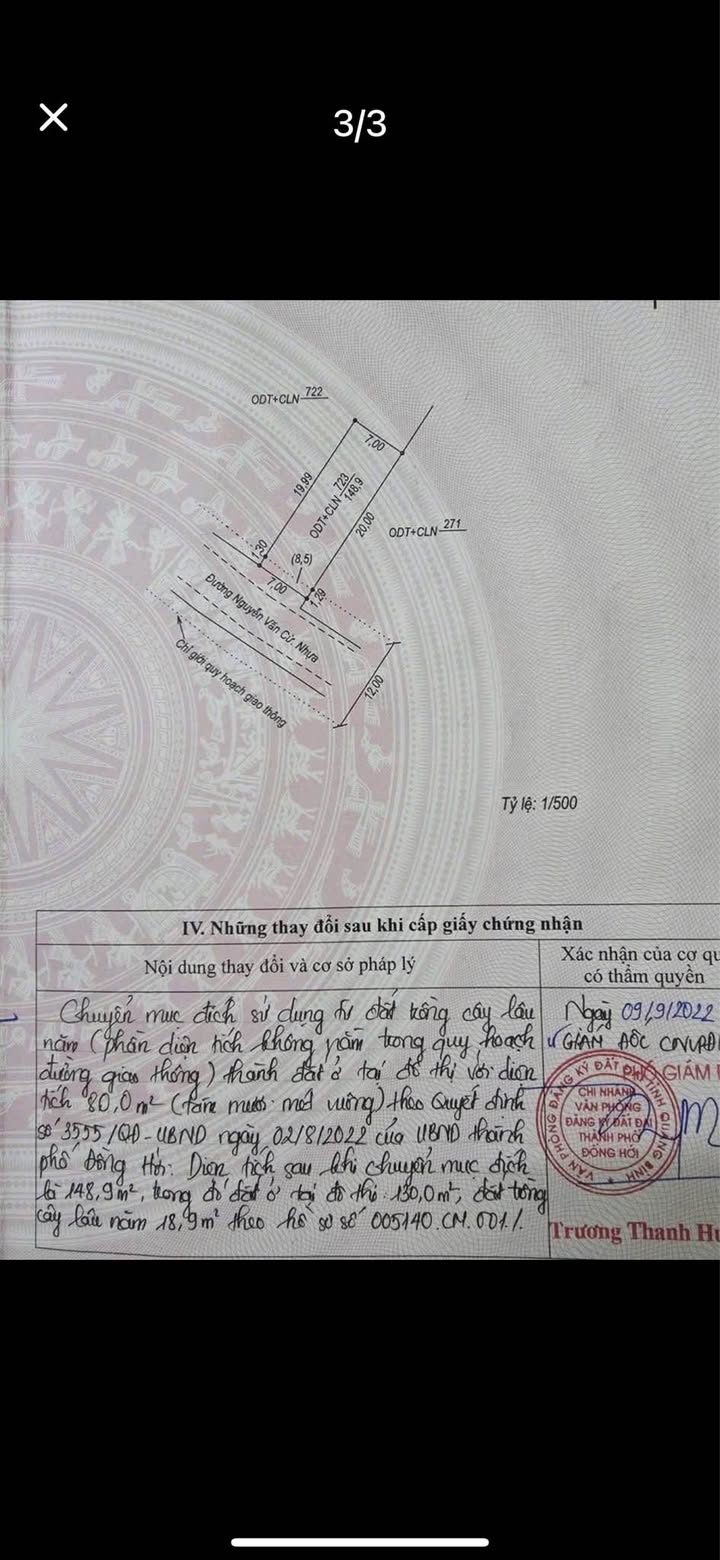 3/3
ODT+CLN 722
7,00
19,99
ODT+CLN 723
148,9
20,00
ODT+CLN 271
1,30
(8,5)
7,00
1,29
Đường Nguyễn Văn Cừ Nhựa
Chỉ giới quy hoạch giao thông
12,00
Tỷ lệ: 1/500
IV. Những thay đổi sau khi cấp giấy chứng nhận
Nội dung thay đổi và cơ sở pháp lý
Xác nhận của cơ qu
có thẩm quyền
Chuyển mục đích sử dụng từ đất trồng cây lâu
năm (phần diện tích không nằm trong quy hoạch
đường giao thông) thành đất ở tại đô thị với diện
tích 80,0m² (tám mươi mét vuông) theo Quyết định
số 3555/QĐ-UBND ngày 02/8/2022 của UBND thành
phố Đồng Hới. Diện tích sau khi chuyển mục đích
là 148,9m², trong đó đất ở tại đô thị: 130,0m², đất trồng
cây lâu năm 18,9m² theo hồ sơ số 005140.CM.001./.
Ngày 09/9/2022
GIÁM ĐỐC CNVPĐ
PHÓ GIÁM
VĂN PHÒNG ĐĂNG KÝ ĐẤT ĐAI TỈNH QUẢNG BÌNH
CHI NHÁNH
VĂN PHÒNG
ĐĂNG KÝ ĐẤT ĐAI
THÀNH PHỐ
ĐỒNG HỚI
Trương Thanh